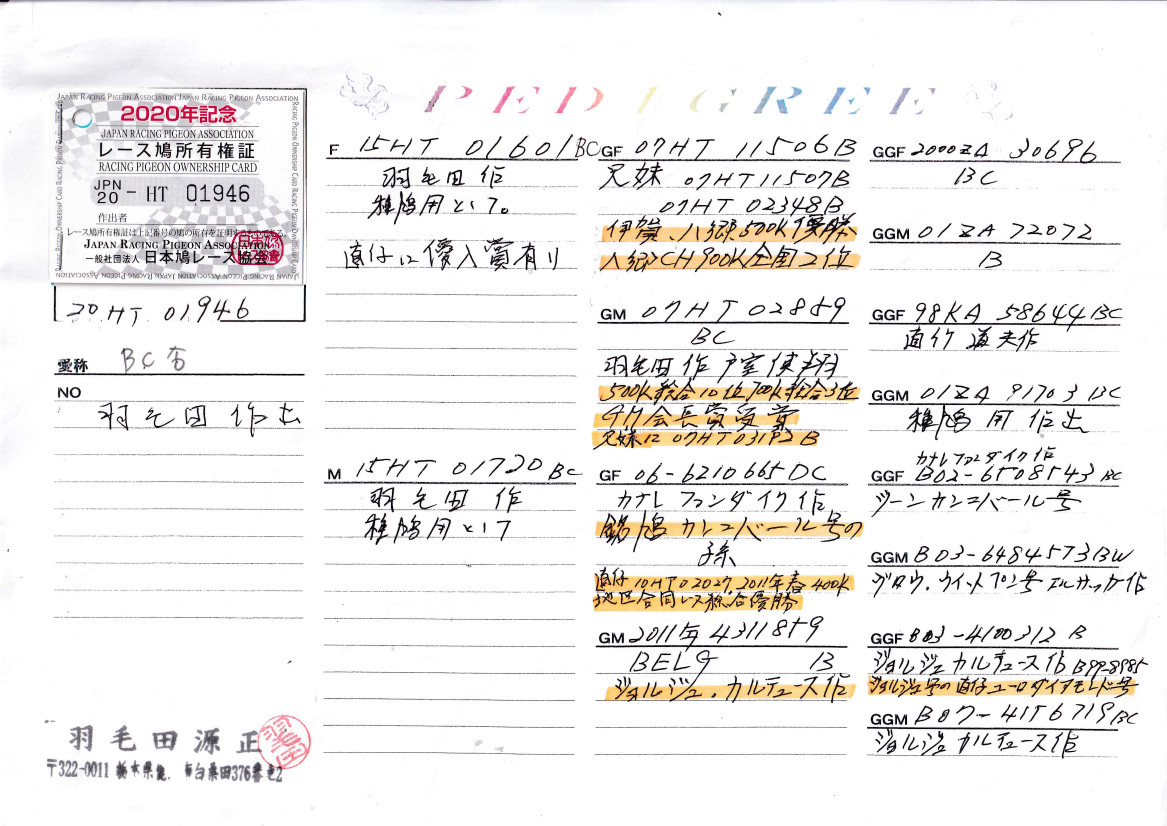 PEDIGREE
JAPAN RACING PIGEON ASSOCIATION JAPAN RACING PIGEON ASSOCIATION
2020年記念
JAPAN RACING PIGEON ASSOCIATION
レース鳩所有権証
RACING PIGEON OWNERSHIP CARD
JPN 20 - HT 01946
作出者
レース鳩所有権証は上記番号の鳩の所有を証明するものである
JAPAN RACING PIGEON ASSOCIATION
一般社団法人 日本鳩レース協会
20 HT 01946
愛称 BC
NO
羽毛田 作出
羽毛田源正
〒322-0011 栃木県 市白桑田376番
F 15HT 01601 BC
羽毛田 作
種鳩用として。
直仔に優入賞有り
M 15HT 01720 BC
羽毛田 作
種鳩用として
GF 07HT 11506B
兄妹 07HT11507B
07HT 02348B
伊賀、八郷500K優勝
八郷CH900K全国2位
GM 07HT 02859
BC
羽毛田作 戸室使翔
500K総合10位700K総合3位
会長賞受賞
兄妹に 07HT03192B
GF 06-6210665 DC
カナレ ファンダイク作
銘鳩 カンコバール号の
孫
直仔 10HT02027. 2011年春400K
地区合同レース総合優勝
GM 2011年 4311859
BELG B
ジョルジュ.カルテュース作
GGF 2000ZA 30696
BC
GGM 01ZA 72072
B
GGF 98KA 58644 BC
直行 道夫作
GGM 01ZA 91703 BC
種鳩用 作出
カナレファンダイク作
GGF B02-6508543 BC
ジーンカンコバール号
GGM B03-6484573 BW
GGF B03-4100312 B
ジョルジュ カルテュース作 B99-8985
ジョルジュ号の直仔ユーロダイアモンド号
GGM B07-4156719 BC
ジョルジュ カルテュース作